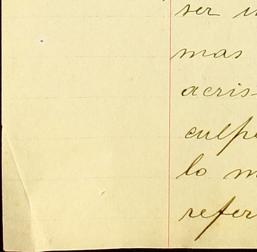 ser
mas
acris-
culp
lo m
refer